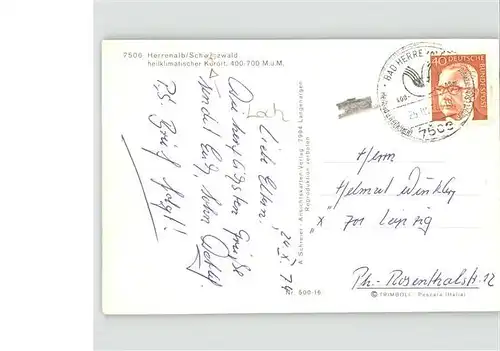 7506 Herrenalb/Schwarzwald
heilklimatischer Kurort, 400-700 M.ü.M.
Lieb Eltern!
24.X.74
herzlichsten Grüße
PS. Brief folgt!
A. Schreier - Ansichtskarten-Verlag · 7994 Langenargen
Reproduktion verboten
Nr. 500-16
BAD HERRE
7506
40 DEUTSCHE
BUNDESPOST
Herrn
Helmut Winkler
"x" 701 Leipzig
Ph.-Rosenthalstr. 12
© TRIMBOLI - Pescara (Italia)